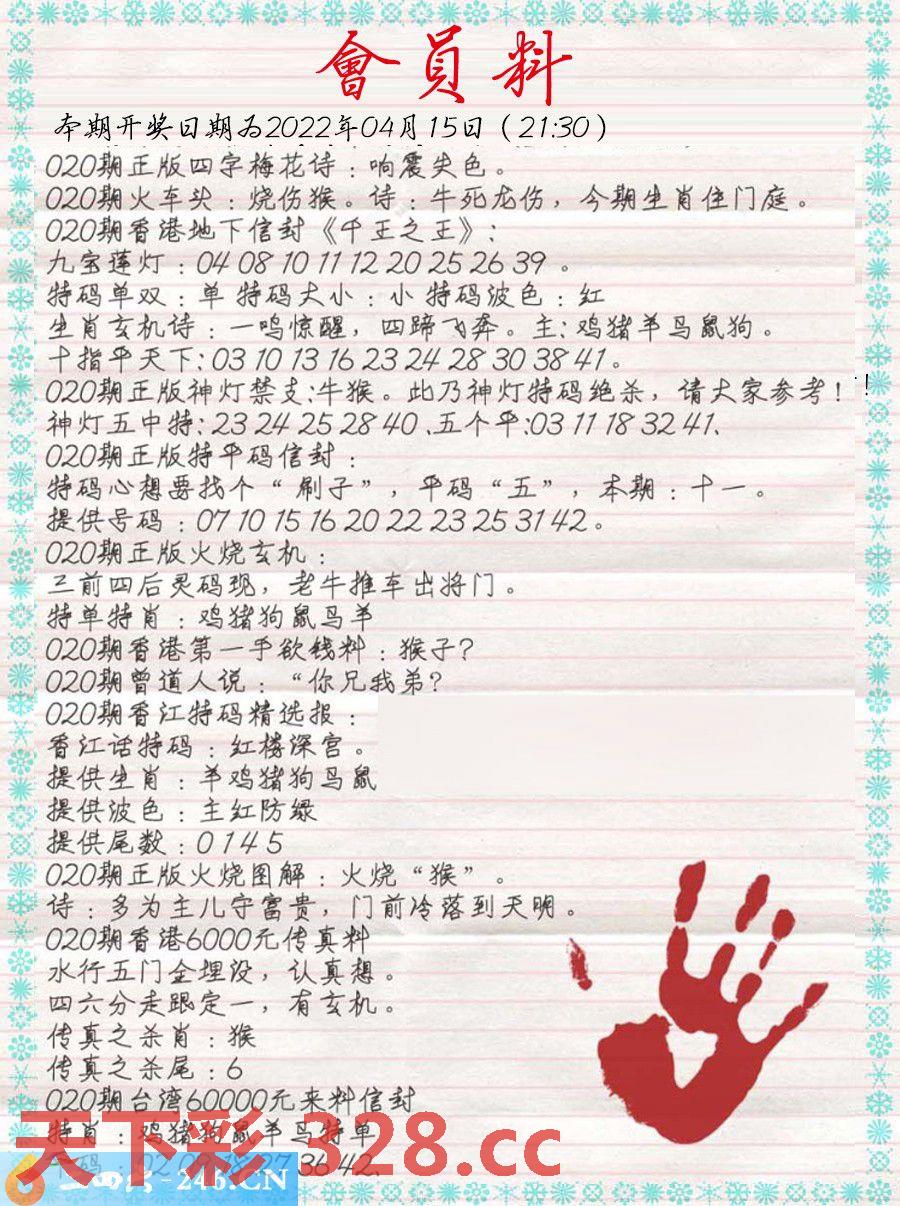 會員料
本期开奖日期为2022年04月15日（21:30）
020期正版四字梅花诗：响震失色。
020期火车头：烧伤猴。诗：牛死龙伤，今期生肖住门庭。
020期香港地下信封《千王之王》:
九宝莲灯：04 08 10 11 12 20 25 26 39 。
特码单双：单 特码大小：小 特码波色：红
生肖玄机诗：一鸣惊醒，四蹄飞奔。主:鸡猪羊马鼠狗。
十指平天下:03 10 13 16 23 24 28 30 38 41。
020期正版神灯禁支:牛猴。此乃神灯特码绝杀，请大家参考！!
神灯五中特:23 24 25 28 40 、五个平:03 11 18 32 41、
020期正版特平码信封：
特码心想要找个“刷子”，平码“五”，本期：十一。
提供号码：07 10 15 16 20 22 23 25 31 42。
020期正版火烧玄机：
三前四后灵码现，老牛推车出将门。
特单特肖：鸡猪狗鼠马羊
020期香港第一手欲钱料：猴子?
020期曾道人说：“你兄我弟?
020期香江特码精选报：
香江话特码：红楼深宫。
提供生肖：羊鸡猪狗马鼠
提供波色：主红防绿
提供尾数：0 1 4 5
020期正版火烧图解：火烧“猴”。
诗：多为主儿守富贵，门前冷落到天明。
020期香港6000元传真料
水行五门金埋没，认真想。
四六分走跟定一，有玄机。
传真之杀肖：猴
传真之杀尾：6
020期台湾60000元来料信封
特肖：鸡猪狗鼠羊马特单
天下彩328.cc
码：02 09 18 27 36 42、
-246.CN